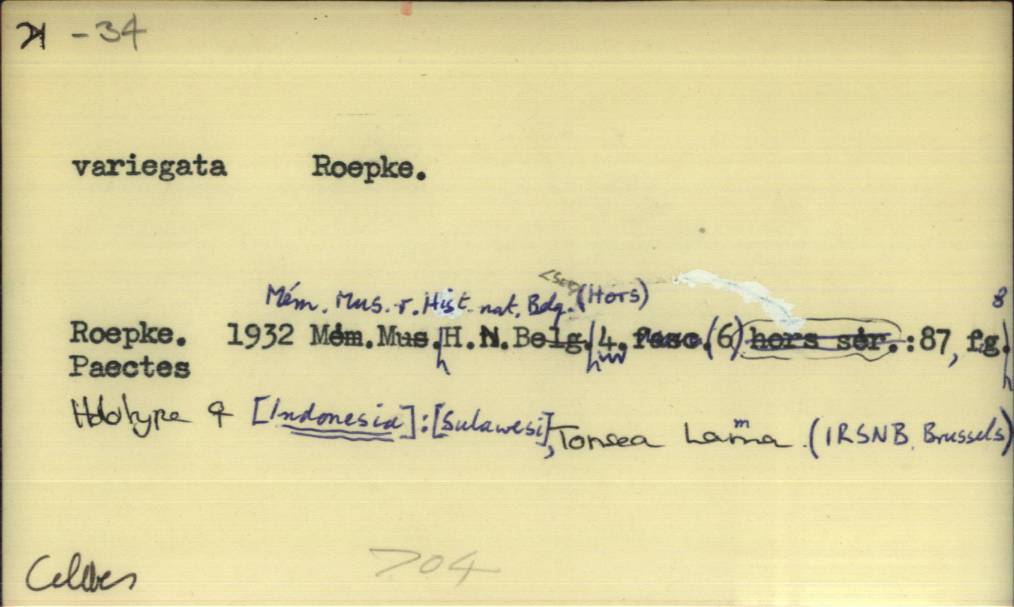 -34
variegata Roepke.
Mém. Mus. r. Hist. nat. Belg. (Hors) 8
Roepke. 1932 Mém.Mus.H.N.Belg. 4. fasc.(6) hors sér.:87, fg.
Paectes
Holotype ♀ [Indonesia]:[Sulawesi], Tonsea Lama (IRSNB, Brussels)
Celebes 704